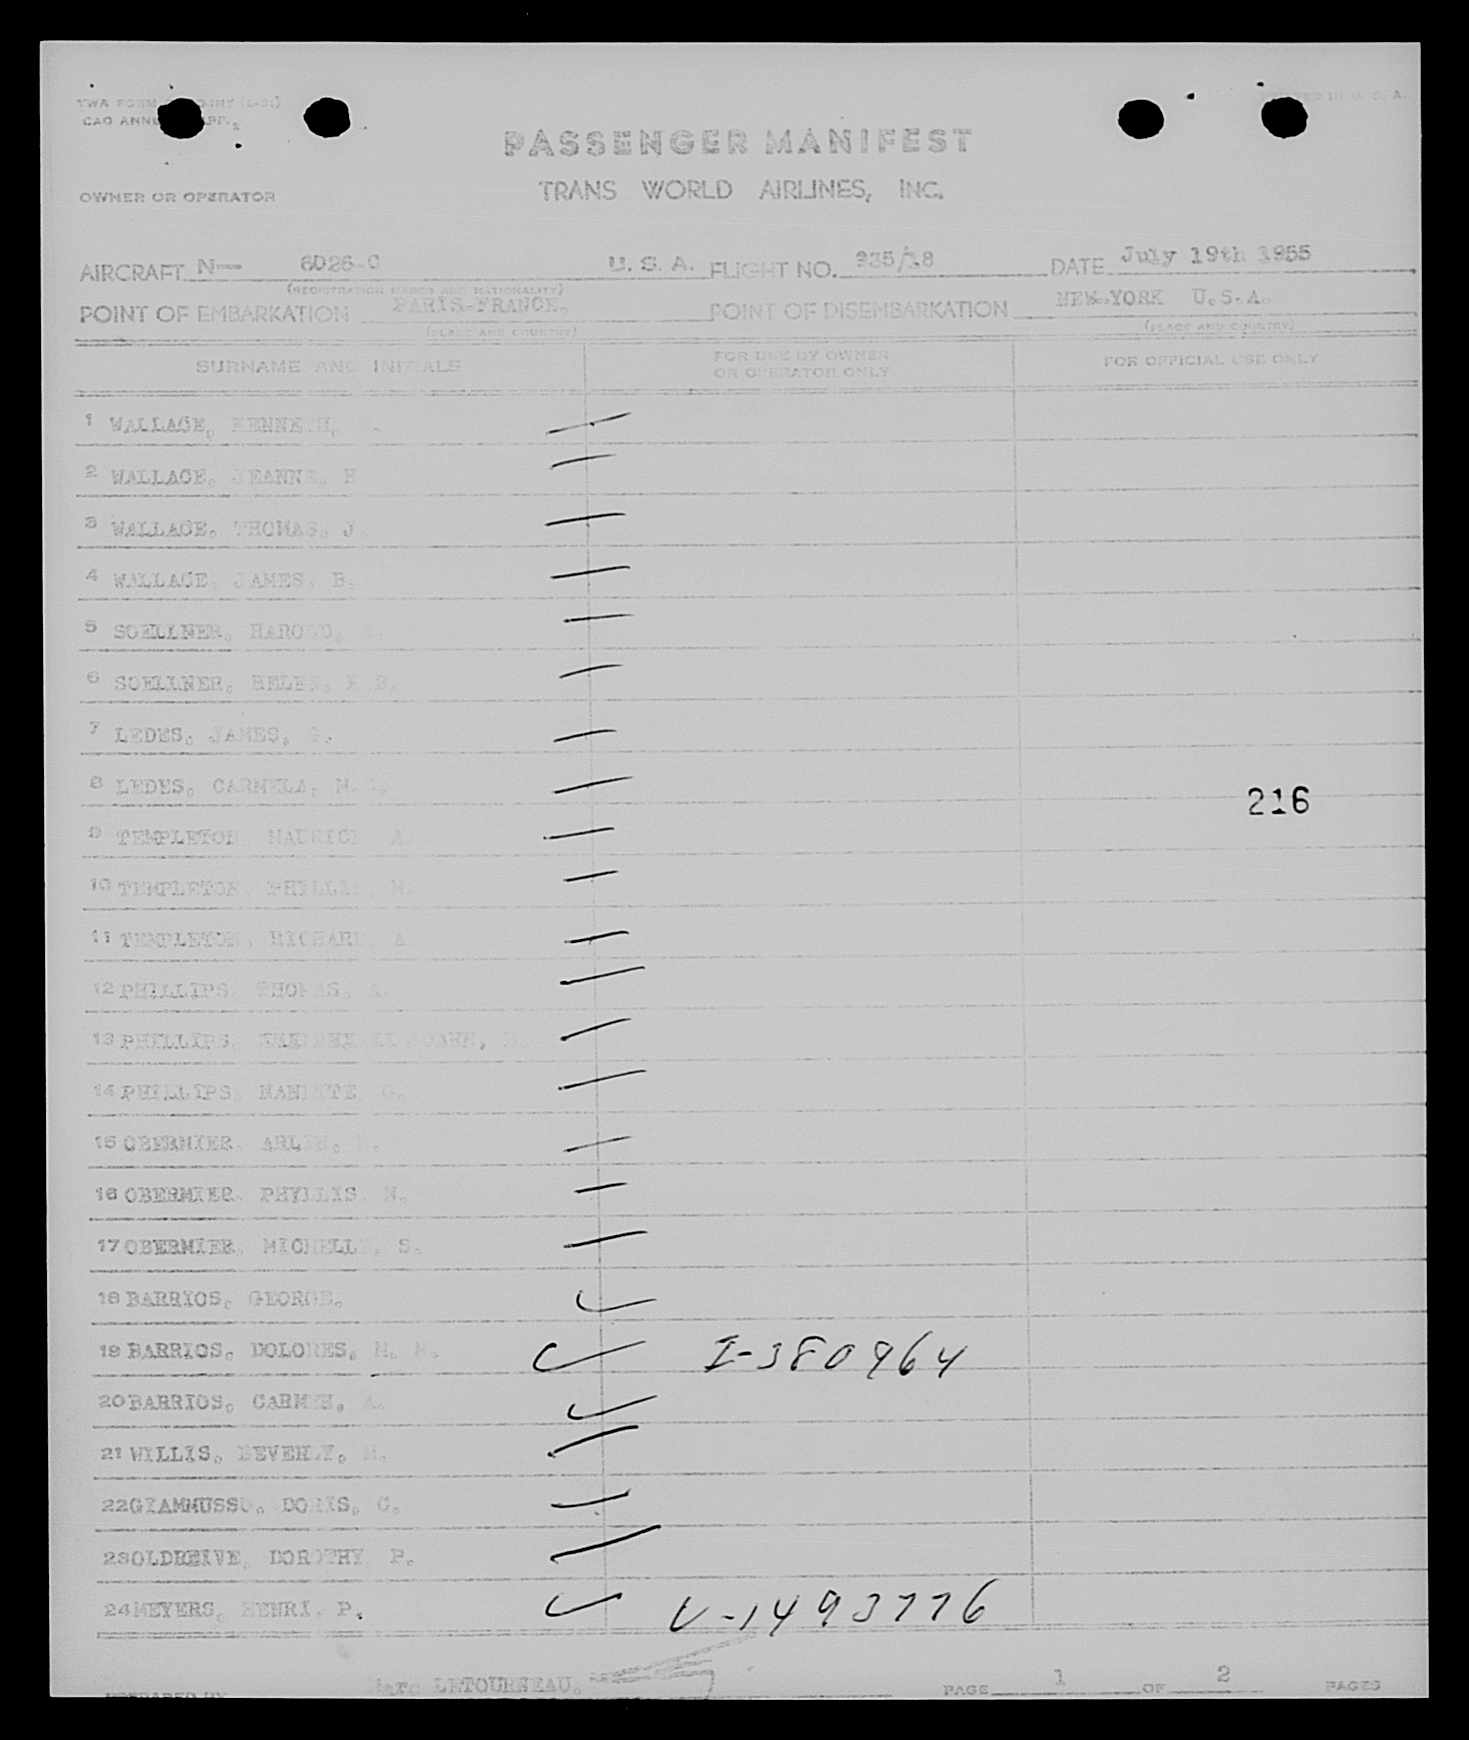 PASSENGER MANIFEST
OWNER OR OPERATOR TRANS WORLD AIRLINES, INC.
AIRCRAFT N— 6026-C U. S. A. FLIGHT NO. 935/18 DATE July 19th 1955
(REGISTRATION MARKS AND NATIONALITY)
POINT OF EMBARKATION PARIS-FRANCE. POINT OF DISEMBARKATION NEW-YORK U.S.A.
(PLACE AND COUNTRY) (PLACE AND COUNTRY)
SURNAME AND INITIALS FOR USE BY OWNER OR OPERATOR ONLY FOR OFFICIAL USE ONLY
1 WALLACE, KENNETH,
2 WALLACE, JEANNE, H
3 WALLACE, THOMAS, J.
4 WALLACE, JAMES, B.
5 SOELLNER, HAROLD,
6 SOELLNER, HELEN,
7 LEDES, JAMES,
8 LEDES, CARMELA, M.
216
9 TEMPLETON MAURICE A.
10 TEMPLETON, PHILLIS, M.
11 TEMPLETON, RICHARD A
12 PHILLIPS, THOMAS, A.
13 PHILLIPS,
14 PHILLIPS, NANETTE G.
15 OBERMIER, ARLEN,
16 OBERMIER, PHYLLIS N.
17 OBERMIER, MICHELLE, S.
18 BARRIOS, GEORGE.
19 BARRIOS, DOLORES, M. M. I-380964
20 BARRIOS, CARMEN, A.
21 WILLIS, BEVERLY, M.
22 GIAMMUSSO, DORIS, C.
23 OLDREIVE, DOROTHY P.
24 MEYERS, HENRI, P. V-1493776
Marc LETOURNEAU. PAGE 1 OF 2 PAGES